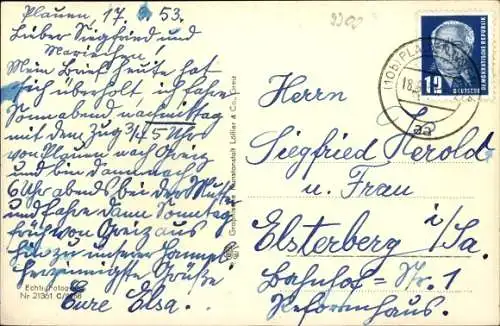 Plauen, 17. 8. 53.
Lieber Siegfried und
Mariechen!
Mein Brief heute hat
sich überholt, ich fahre
Sonnabend nachmittag
mit dem Zug 3/45 Uhr
von Plauen nach Greiz
und bin dann nach
6 Uhr abends bei der Mutti
und fahre dann Sonntag
früh von Greiz aus
hin zu unserer
Grüße
Eure Elsa.
Echte Fotogr.
Nr 21361
Graph. Kunstanstalt Löffler & Co., Greiz
3200
(10b) PLAUEN
18.
aa
12
DEUTSCHE
DEMOKRATISCHE REPUBLIK
Herrn
Siegfried Herold
u. Frau
Elsterberg i/Sa.
Bahnhof-Str. 1
Reformhaus.